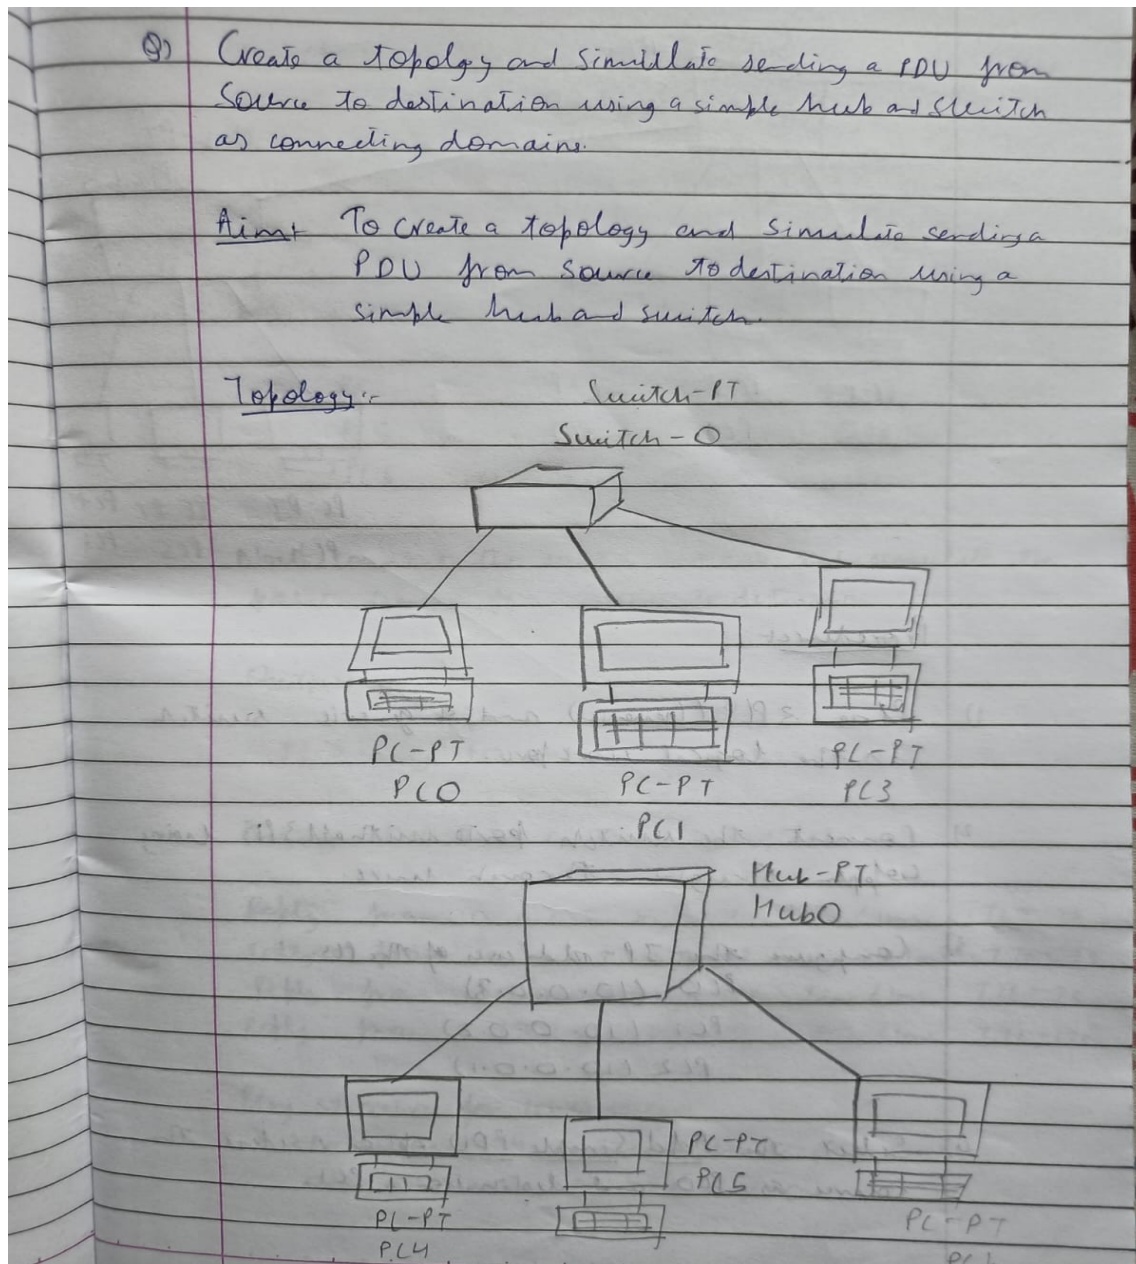 Q) Create a topolgy and Simullate sending a PDU from
Source to destination using a simple hub and Switch
as connecting domains.
Aim:- To create a topology and simulate sending a
PDU from source to destination using a
simple hub and switch.
Topology:-
Switch-PT
Switch-0
PC-PT
PC0
PC-PT
PC1
PC-PT
PC3
Hub-PT
Hub0
PC-PT
PC4
PC-PT
PC5
PC-PT